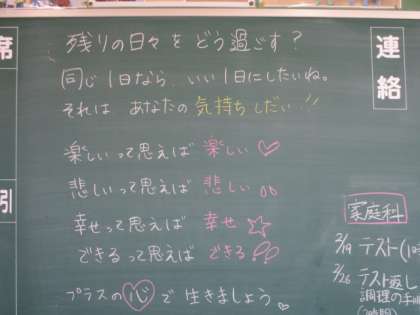 残りの日々を どう過ごす?
同じ1日なら、いい1日にしたいね。
それは あなたの 気持ちしだい!!
楽しいって思えば 楽しい♡
悲しいって思えば 悲しい
幸せって思えば 幸せ☆
できるって思えば できる!!
プラスの心で 生きましょう♡
席
引
連絡
家庭科
2/19 テスト(10
2/26 テスト返し
調理の手順